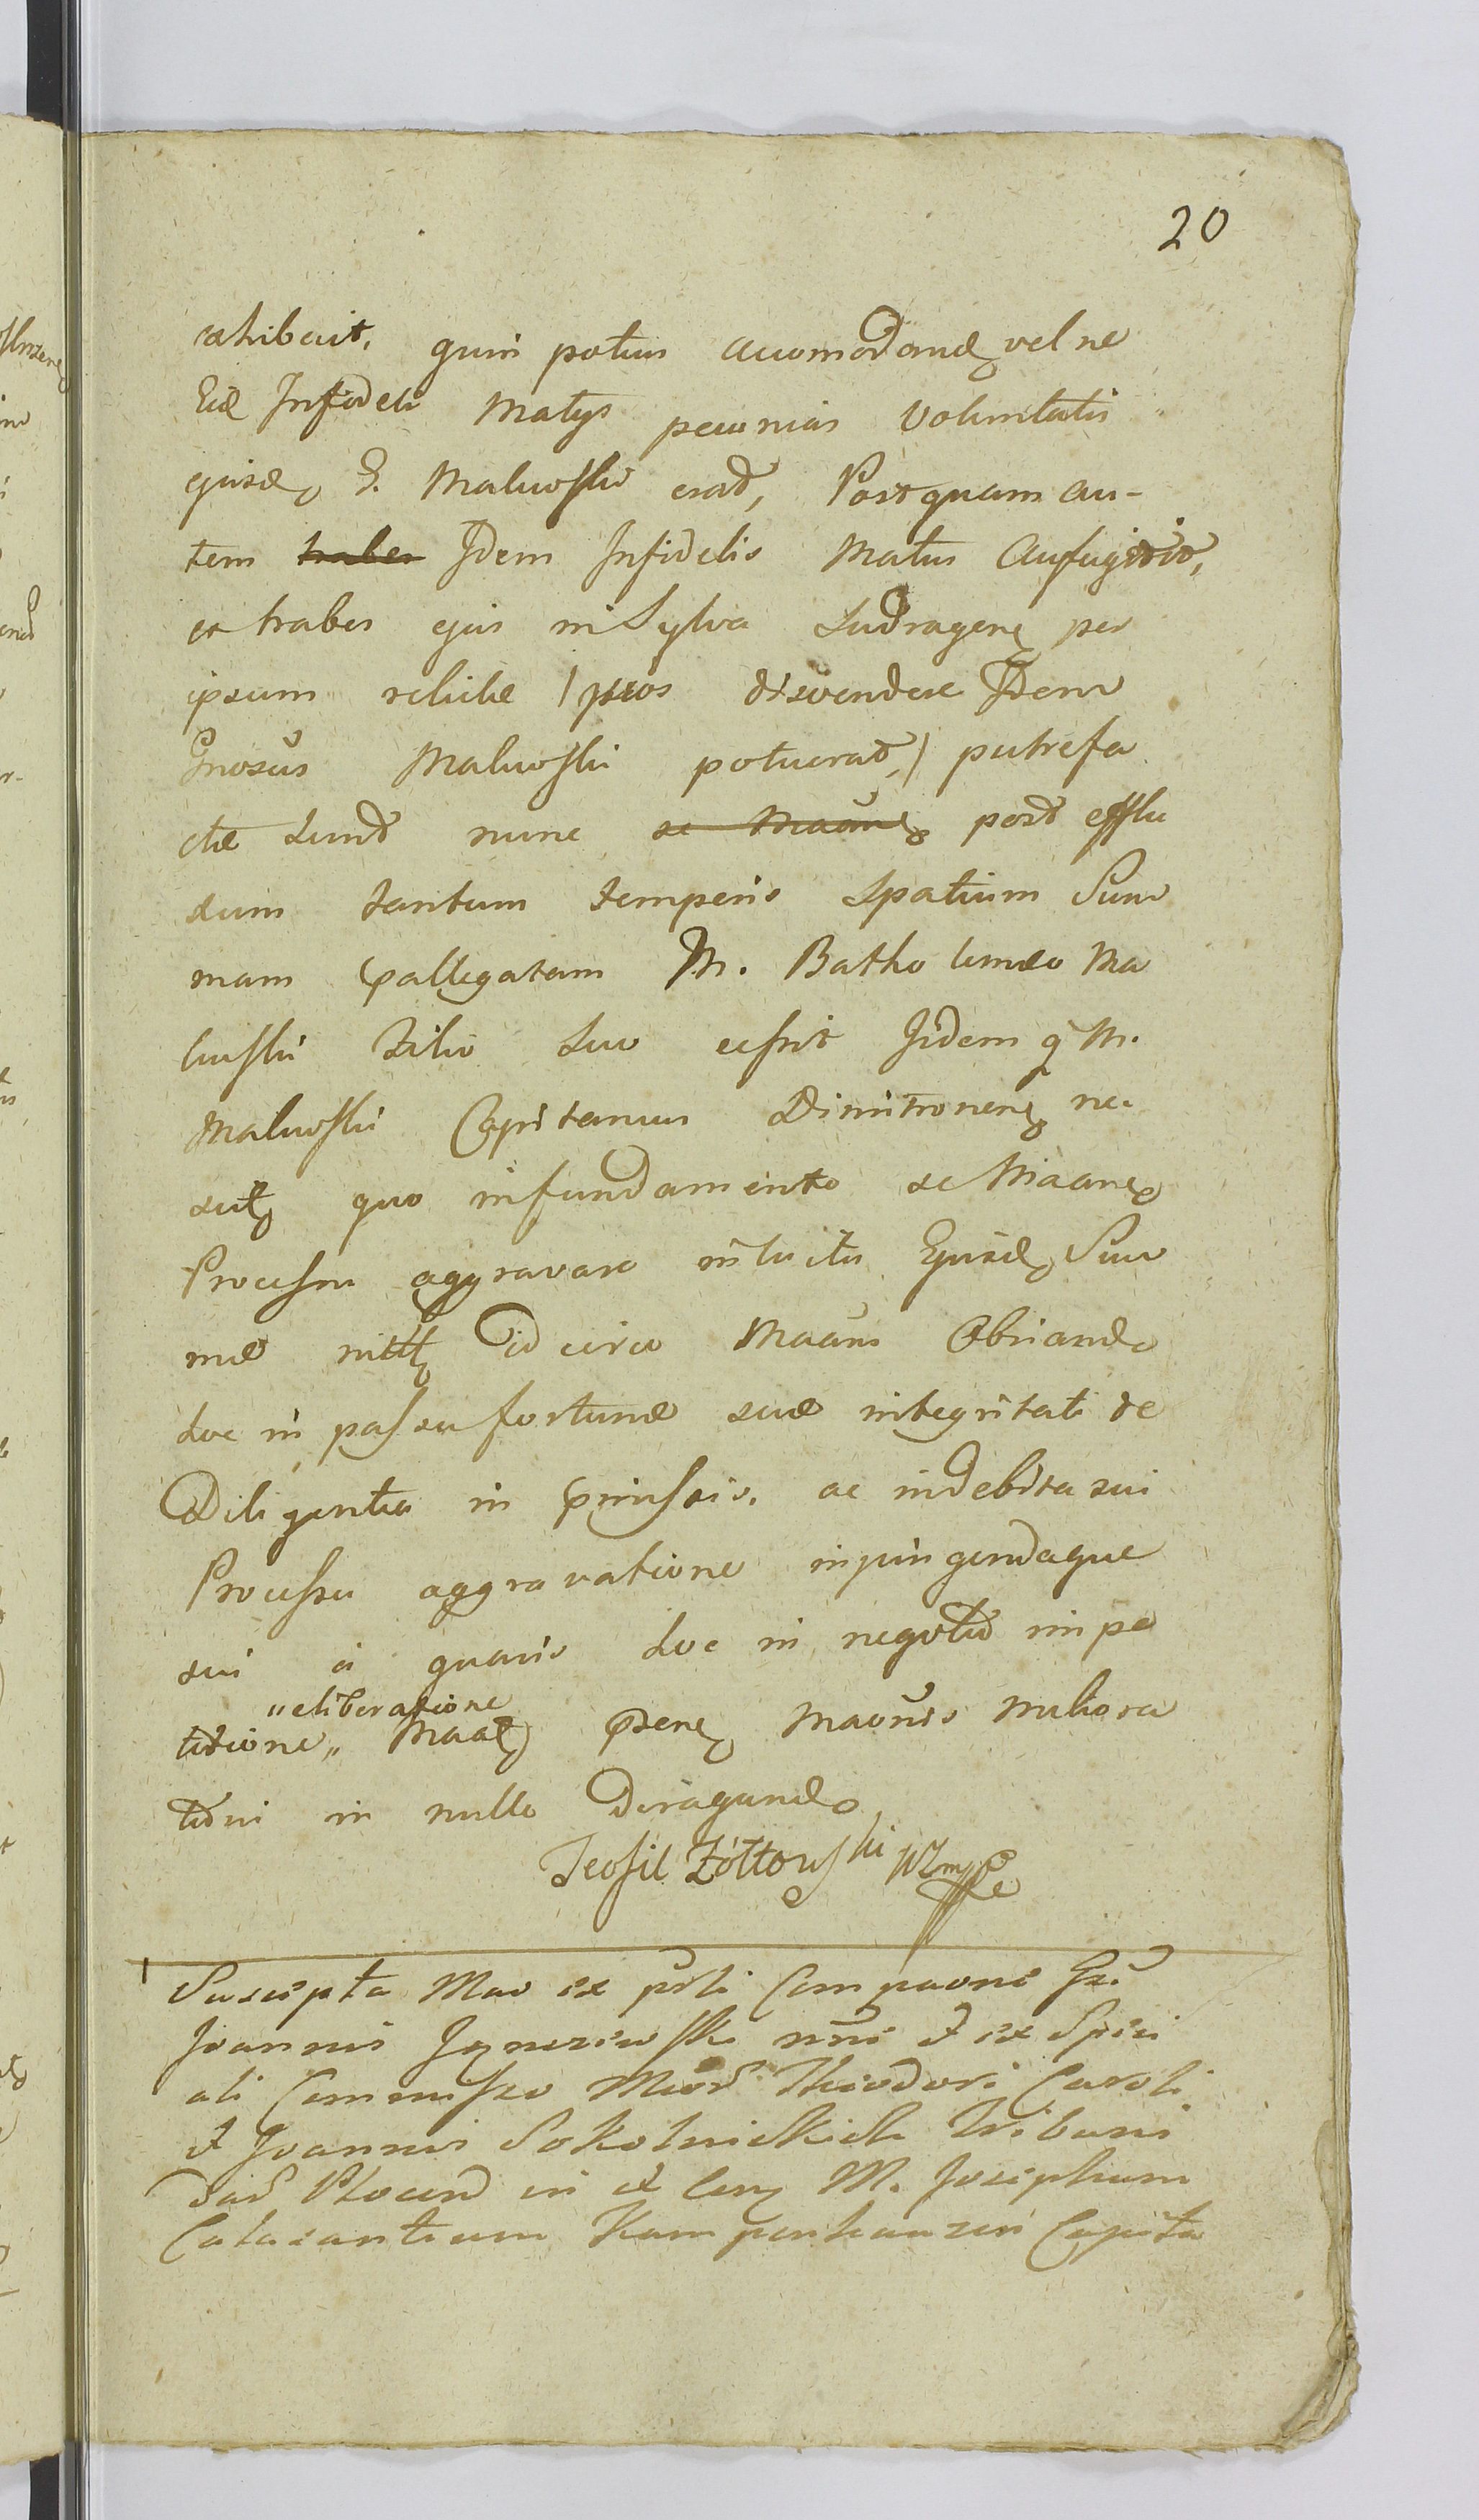 20
exhibuit, quin potius accomodand vel ne
Eid Infideli Matys pecunias Voluntatis
ejusd G. Malwoski erat, Postquam au-
tem trabes Idem Infidelis Matus Aufugit,
et trabes ejus in Sylva Sudragen per
ipsum relictæ (quos disvendere Idem
Gnosus Malwoski potuerat,) putrefa
ctæ sunt nunc se Maan post efflu
xum tantum temporis Spatium Sum
mam allegatam M. Batholomeo Ma
luski Filio Suo cessit Isdem q M.
Malwoski Capitaneus Dimitronen
quo in fundamento se Maan
Processu aggravare intuitu Ejusd Sum
mæ nitit Id circo Maans Obviando
hoc in passu fortunæ suæ integritati de
Diligentia in præmissis, ac indebita sui
Processu aggravatione inpingendaque
sui a quavis hoc in negotio impe
"eliberatione
titione" Maat præsen Maonis meliora
tioni in nullo Deragando
Teofil Zółtowski
Suscepta Mao ex psti Compaone Gsi
Joannis Jezierski mni et ex Speci
ali Commisso Theodori Caroli
et Joannis Sokolnickich Tribuni
Plocen in et M. Josephum
Calasantium Kampenhauzen Capita